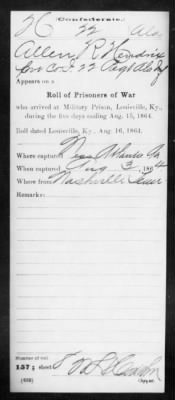 (Confederate.)
H 22 Ala
Allen R Hendrix
Co. 22 Regt Ala Inf
Appears on a
Roll of Prisoners of War
who arrived at Military Prison, Louisville, Ky.,
during the five days ending Aug. 15, 1864.
Roll dated Louisville, Ky., Aug. 16, 1864.
Where captured Near Atlanta Ga
When captured Aug 3, 1864
Where from Nashville Tenn
Remarks:
Number of roll
157; sheet 8
(639)
Copyist.